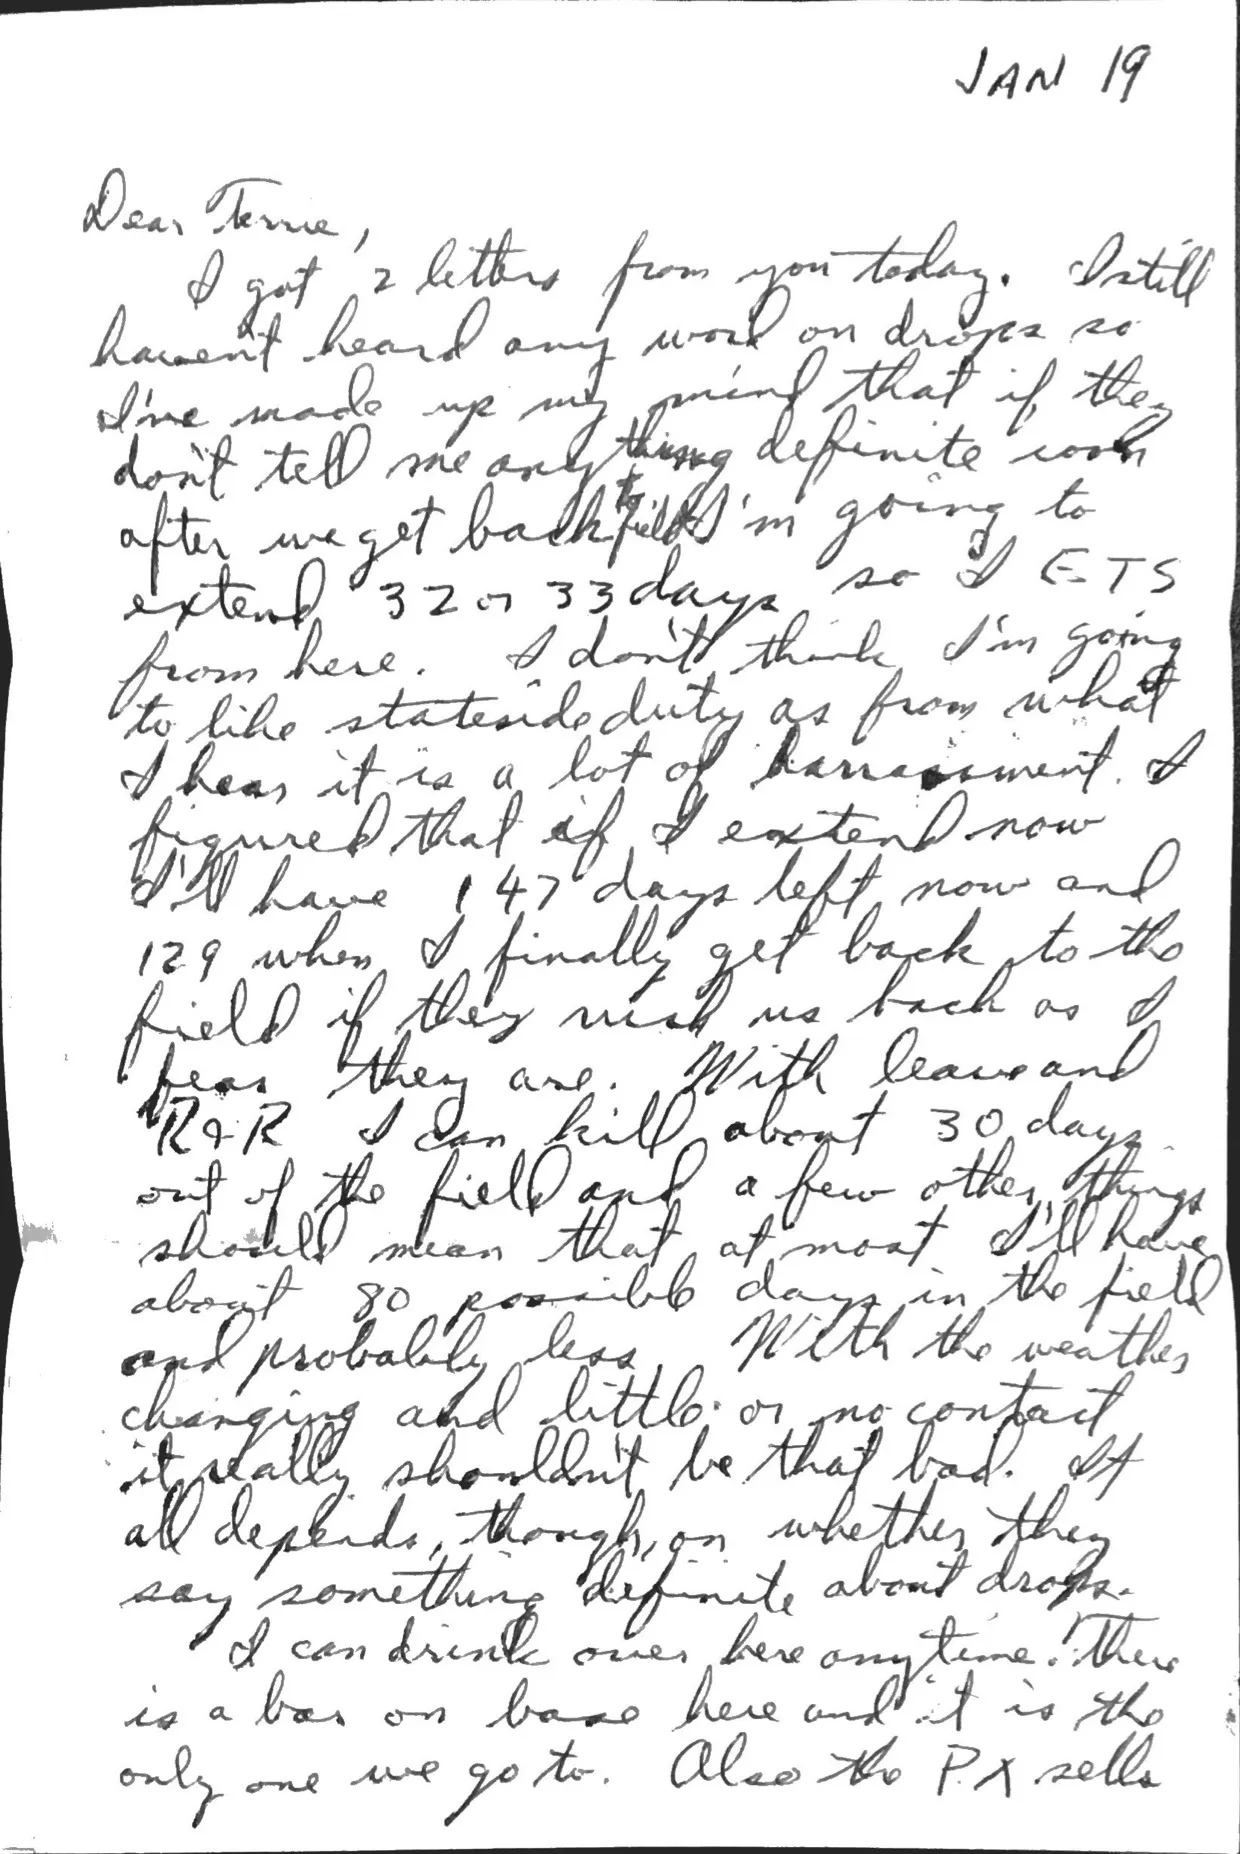 JAN 19
Dear Terrie,
I got 2 letters from you today. I still
haven't heard any word on drops so
I've made up my mind that if they
don't tell me anything definite soon
after we get back to field I'm going to
extend 32 or 33 days so I ETS
from here. I don't think I'm going
to like stateside duty as from what
I hear it is a lot of harrassment. I
figured that if I extend now
I'll have 147 days left now and
129 when I finally get back to the
field if they rush us back as I
fear they are. With leave and
R+R I can kill about 30 days
out of the field and a few other things
should mean that at most I'll have
about 80 possible days in the field
and probably less. With the weather
changing and little or no contact
it really shouldn't be that bad. It
all depends, though, on whether they
say something definite about drops.
I can drink over here anytime! There
is a bar on base here and it is the
only one we go to. Also the P.X sells